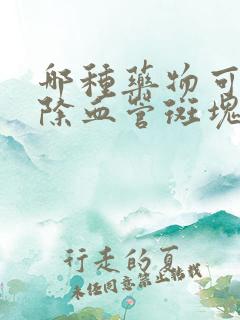 哪种药物可
除血管斑块
行走的夏
未经同意禁止转载